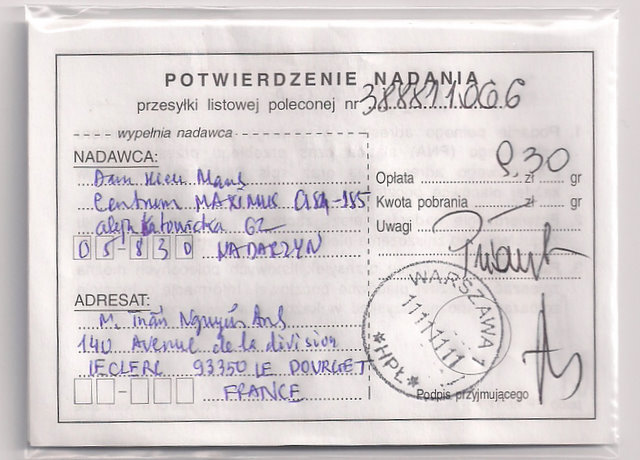 POTWIERDZENIE NADANIA
przesyłki listowej poleconej nr 388811.006
wypełnia nadawca
NADAWCA:
Dam Hieu Manh
Centrum MAXIMUS C184-185
aleja Katowicka 62
05-830 NADARZYN
ADRESAT:
M. Trần Nguyên Anh
140 Avenue de la division
LECLERC 93350 LE BOURGET
FRANCE
Opłata 9,30 zł gr
Kwota pobrania zł gr
Uwagi
WARSZAWA 1
11111111
*HPŁ*
Podpis przyjmującego